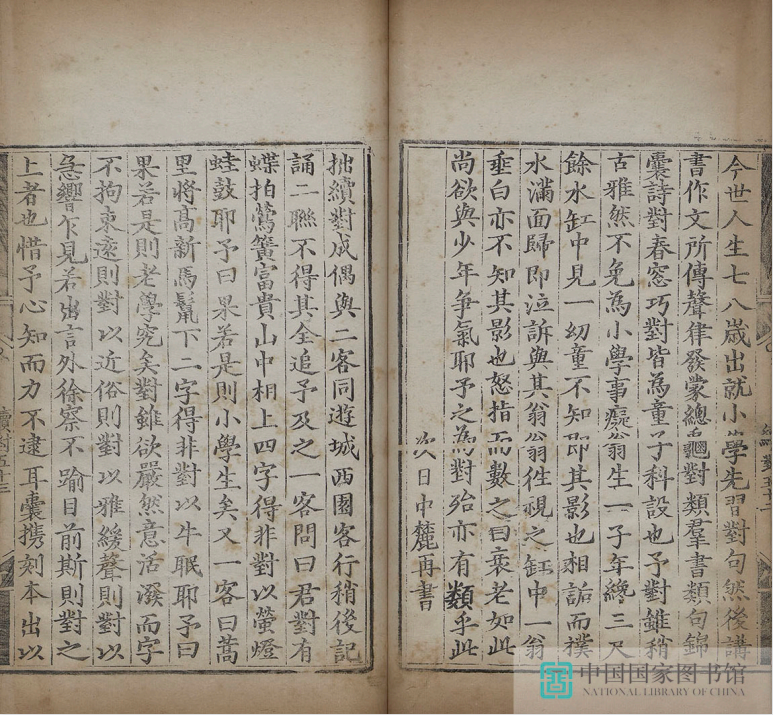 今世人生七八歲出就小學先習對句然後講
書作文所傳聲律發蒙總龜對類羣書類句錦
囊詩對春窓巧對皆為童子科設也予對雖稍
古雅然不免為小學事癡翁生一子年纔三尺
餘水缸中見一幼童不知即其影也相詬而撲
水滿面歸即泣訴與其翁翁徃視之缸中一翁
垂白亦不知其影也怒指而數之曰衰老如此
尚欲與少年爭氣耶予之為對殆亦有類乎此
次日中麓再書
續對五十二
拙續對成偶與二客同遊城西園客行稍後記
誦二聯不得其全追予及之一客問曰君對有
蝶拍鶯簧富貴山中相上四字得非對以螢燈
蛙鼓耶予曰果若是則小學生矣又一客曰蒿
里將高新馬鬣下二字得非對以牛眠耶予曰
果若是則老學究矣對雖欲嚴然意活潑而字
不拘束遠則對以近俗則對以雅緩聲則對以
急響乍見若出言外徐察不踰目前斯則對之
上者也惜予心知而力不逮耳囊携刻本出以
續對五十三
中国国家图书馆
NATIONAL LIBRARY OF CHINA